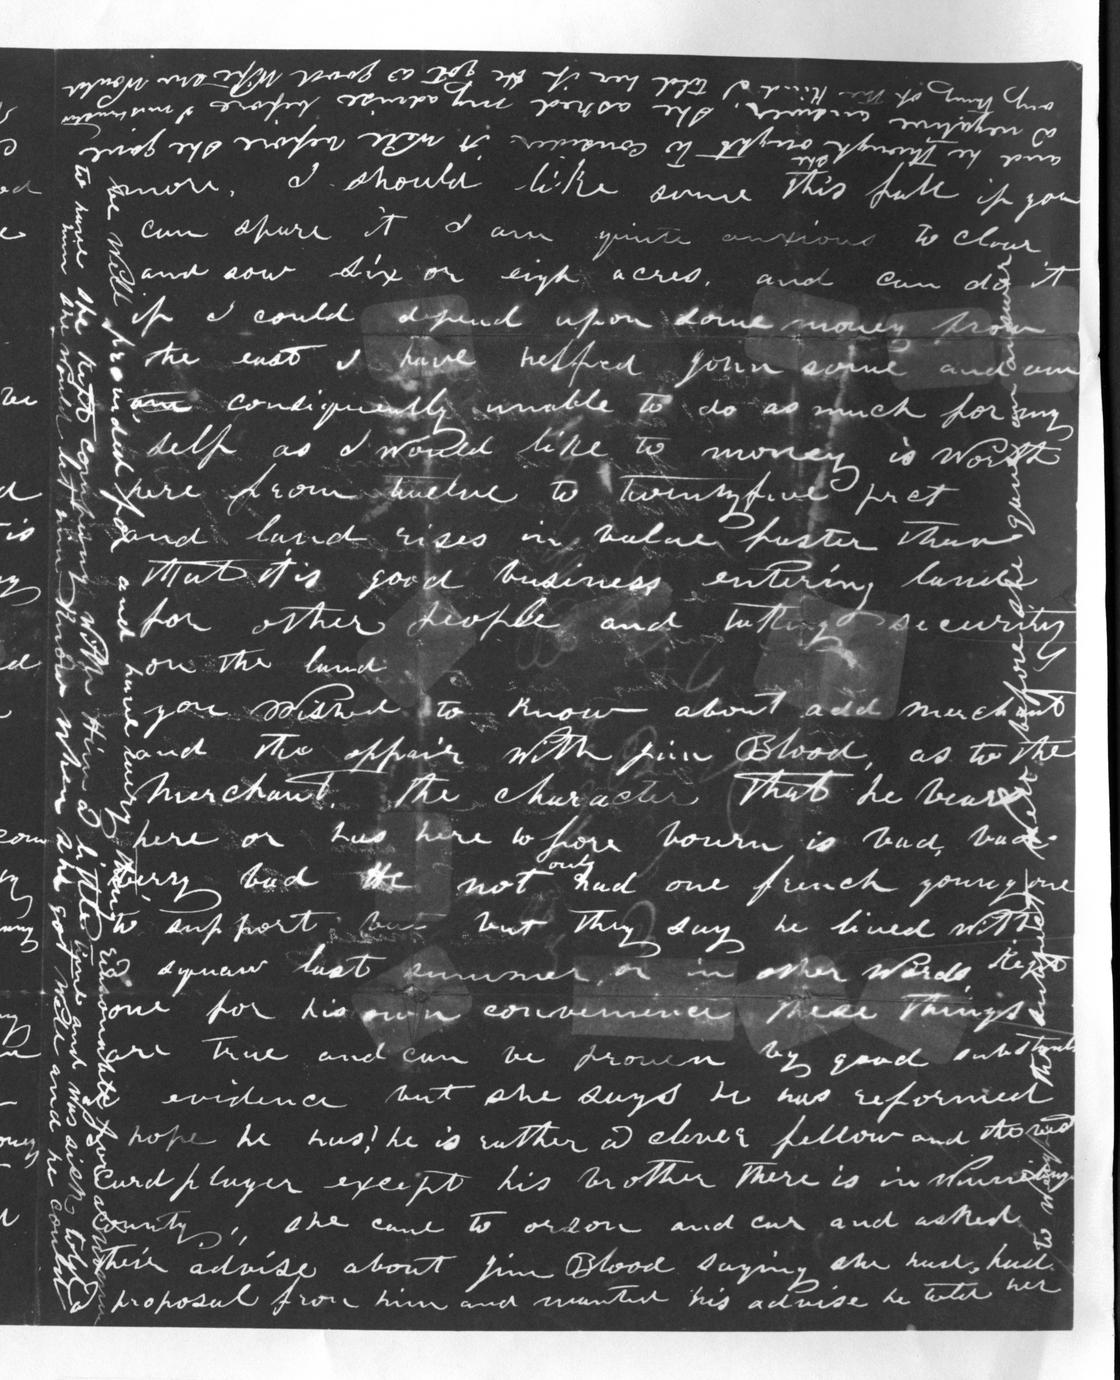 more, I should like some this fall if you
can spare it I am quite anxious to clear
and sow six or eigh acres, and can do it
if I could depend upon some money from
the east I have helped John some and am
am consiquently unable to do as much for my
self as I would like to money is worth
here from twelve to twentyfive prct
and land rises in value faster than
that it is good business entering lands
for other people and taking security
on the land
you wished to know about add merchant
and the appair with jim Blood, as to the
Merchant, the character that he bears
here or has here to fore bourn is bad, bad
verry bad He not only had one french young one
to support but they say he lived with
a squaw last summer, or in other words, kept
one for his own convenience these things
are true and can be proven by good substantial
evidence but she says he has reformed
hope he has! he is rather a clever fellow and the
card player except his brother there is in Winnebago
county, she came to orson and car and asked
their advise about jim Blood saying she had, had
proposal from him and wanted his advise he told her
to weigh that subject well before she gave an answer
and he though she ought to consider it well before she give
a negative answer, she asked my advise before
any thing of the kind I told her if he got a good Wife he would
be Will provided for and have every thing reasonable for a Woman
to have she kept company with Him a little time and was sick, told
him she would let him know when she got well and he could